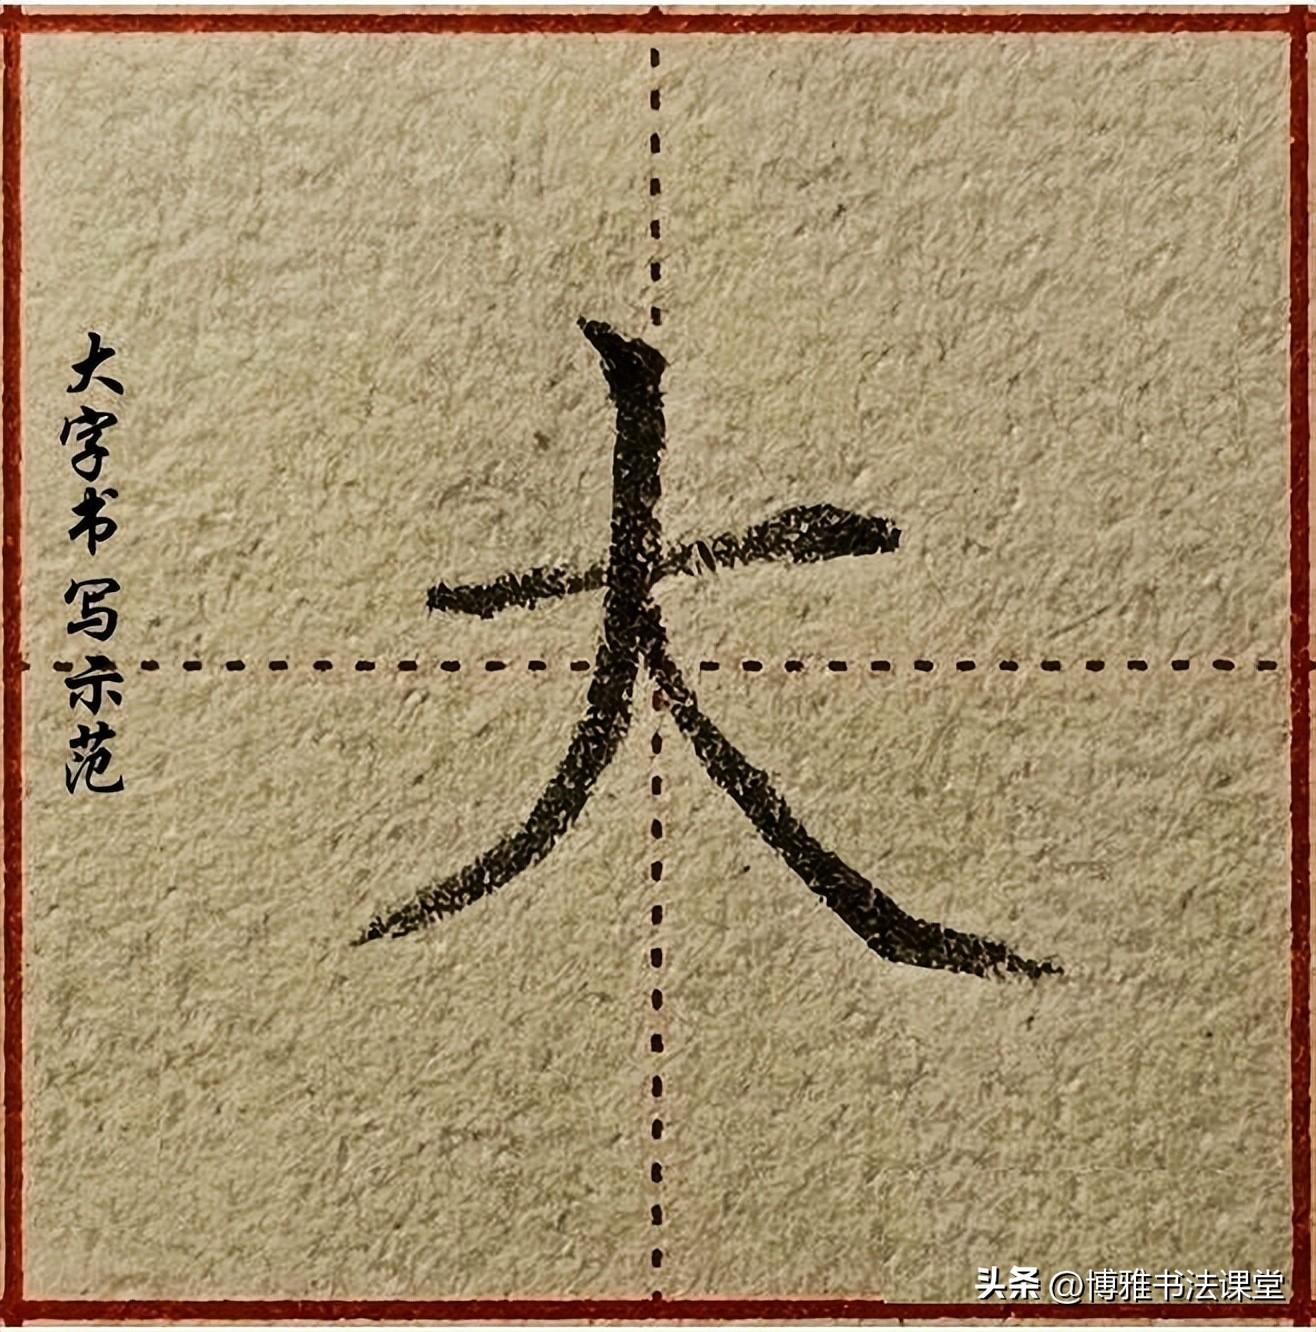 大字书写示范
大
头条 @博雅书法课堂